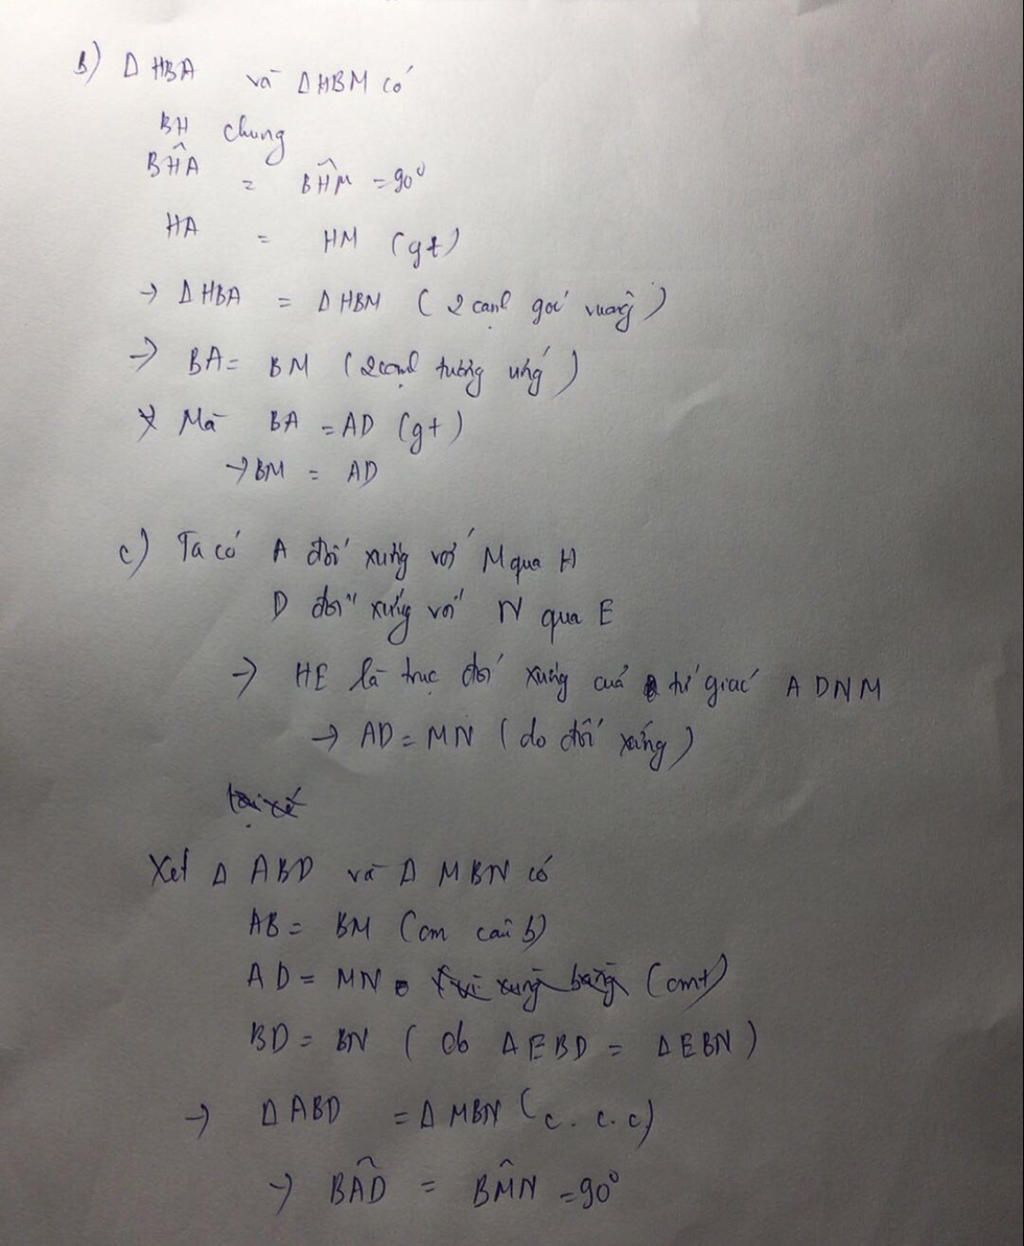 b) Δ HBA và Δ HBM có
BH chung
BĤA = BĤM = 90⁰
HA = HM (gt)
→ Δ HBA = Δ HBM (2 cạnh góc vuông)
→ BA = BM (2 cạnh tương ứng)
Mà BA = AD (gt)
→ BM = AD
c) Ta có A đối xứng với M qua H
D đối xứng với N qua E
→ HE là trục đối xứng của tứ giác ADNM
→ AD = MN (do đối xứng)
Xét Δ ABD và Δ MBN có
AB = BM (cm câu b)
AD = MN (cmt)
BD = BN (do Δ EBD = Δ EBN)
→ Δ ABD = Δ MBN (c.c.c)
→ BÂD = BM̂N = 90⁰